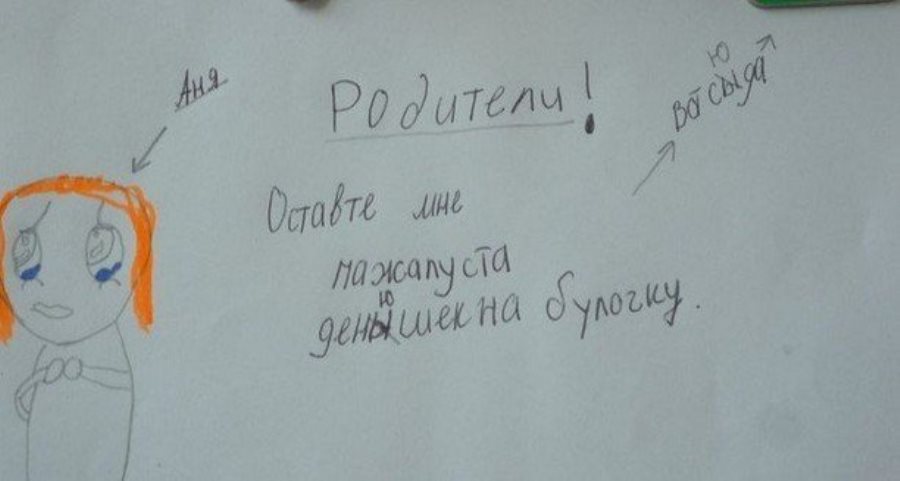 Аня
Родители!
вот сюыда
Оставте мне
пажалуста
денюышек на булочку.